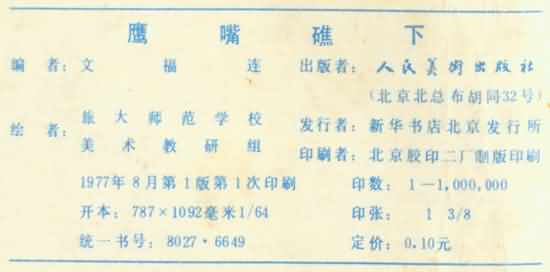 鹰嘴礁下
编者：文福连
绘者：旅大师范学校
美术教研组
1977年8月第1版第1次印刷
开本：787×1092毫米1/64
统一书号：8027·6649
出版者：人民美術出版社
（北京北总布胡同32号）
发行者：新华书店北京发行所
印刷者：北京胶印二厂制版印刷
印数：1—1,000,000
印张：1 3/8
定价：0.10元